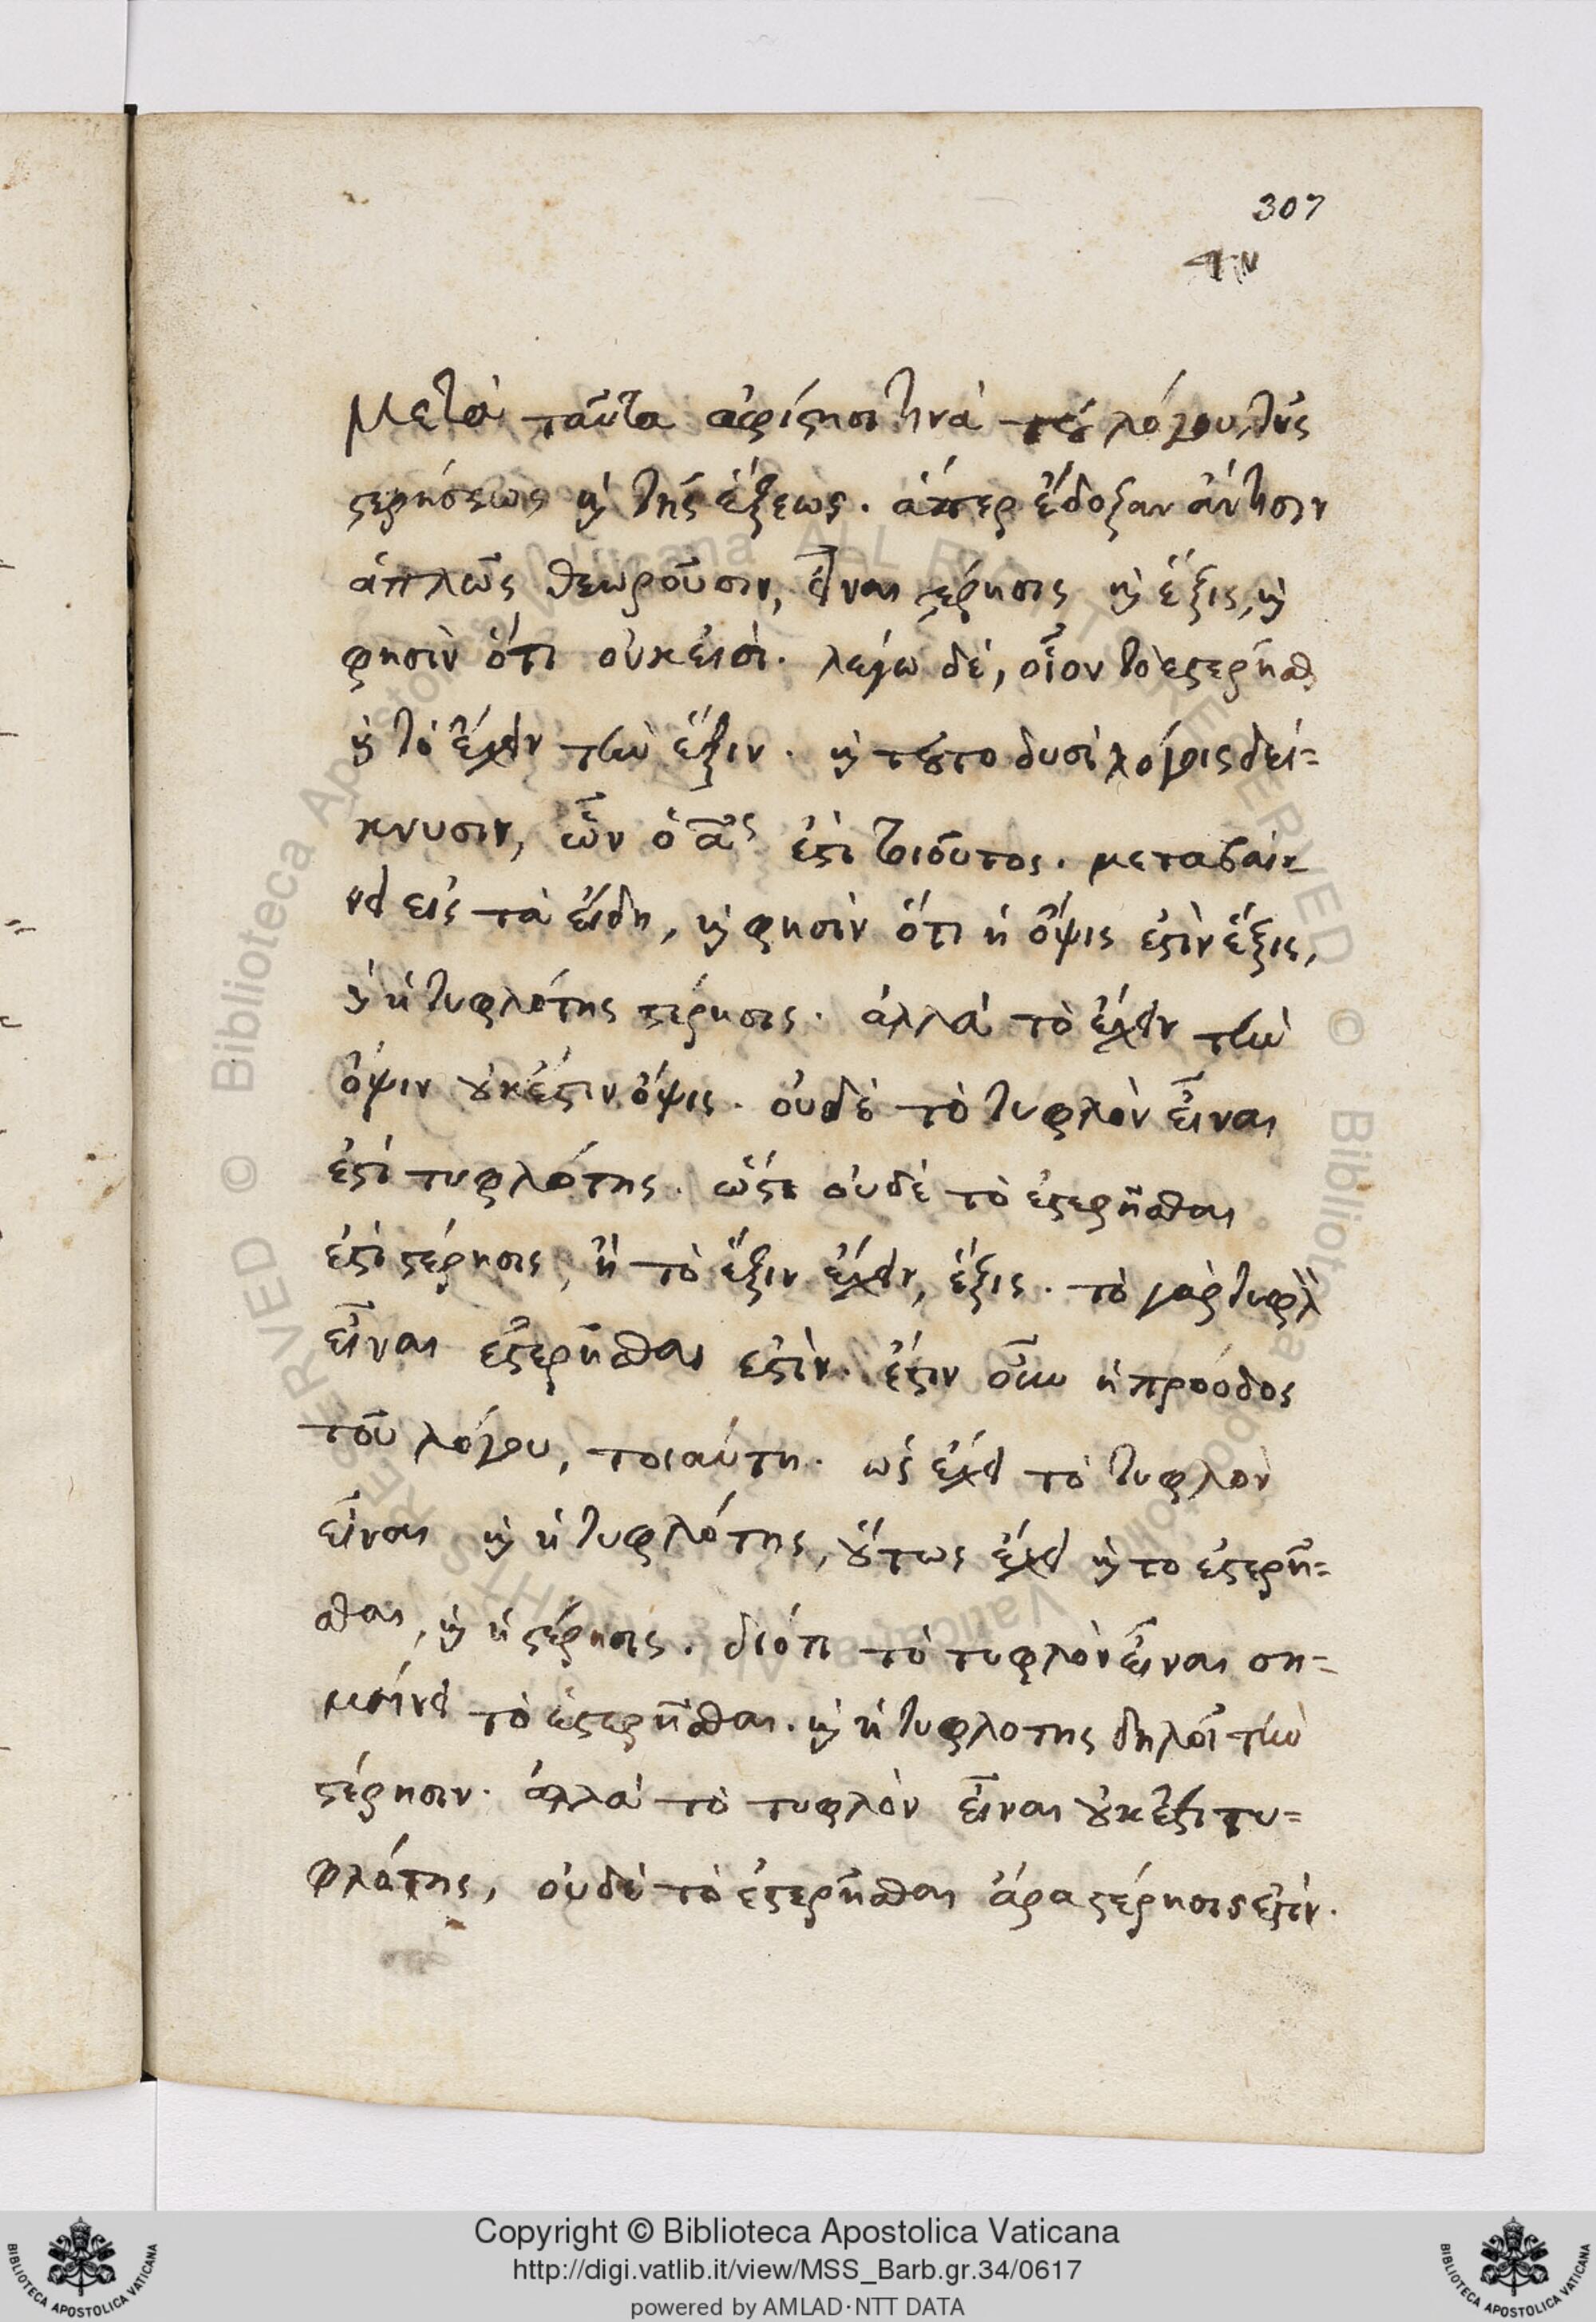 307
Μετὰ ταῦτα ἀφίστησί τινα τοῦ λόγου τῆς
στερήσεως καὶ τῆς ἕξεως. ἅπερ ἔδοξαν ἄν τισιν
ἁπλῶς θεωροῦσιν, εἶναι στέρησις καὶ ἕξις, καὶ
φησὶν ὅτι οὐκ εἰσί. λέγω δὲ, οἷον τὸ ἐστερῆσθαι
καὶ τὸ ἔχειν τὴν ἕξιν. καὶ τοῦτο δυσὶ λόγοις δεί=
κνυσιν, ὧν ὁ αος ἐστὶ τοιοῦτος. μεταβαί
νει εἰς τὰ εἴδη, καὶ φησὶν ὅτι ἡ ὄψις ἐστὶν ἕξις,
καὶ ἡ τυφλότης στέρησις. ἀλλὰ τὸ ἔχειν τὴν
ὄψιν οὐκ ἔστιν ὄψις. οὐδὲ τὸ τυφλὸν εἶναι
ἐστὶ τυφλότης. ὥστε οὐδὲ τὸ ἐστερῆσθαι
ἐστὶ στέρησις, ἢ τὸ ἕξιν ἔχειν, ἕξις. τὸ γὰρ τυφλὸν
εἶναι ἐστερῆσθαι ἐστὶν. ἔστιν οὖν ἡ πρόοδος
τοῦ λόγου, τοιαύτη. ὡς ἔχει τὸ τυφλὸν
εἶναι καὶ ἡ τυφλότης, οὕτως ἔχει καὶ το ἐστερῆ=
σθαι, καὶ ἡ στέρησις. διότι τὸ τυφλὸν εἶναι ση=
μαίνει τὸ ἐστερῆσθαι. καὶ ἡ τυφλοτης δηλοῖ τὴν
στέρησιν. ἀλλὰ τὸ τυφλὸν εἶναι οὐκ ἔστι τυ=
φλότης, οὐδὲ τὸ ἐστερῆσθαι ἄρα στέρησις ἐστίν.
Copyright © Biblioteca Apostolica Vaticana
http://digi.vatlib.it/view/MSS_Barb.gr.34/0617
powered by AMLAD·NTT DATA